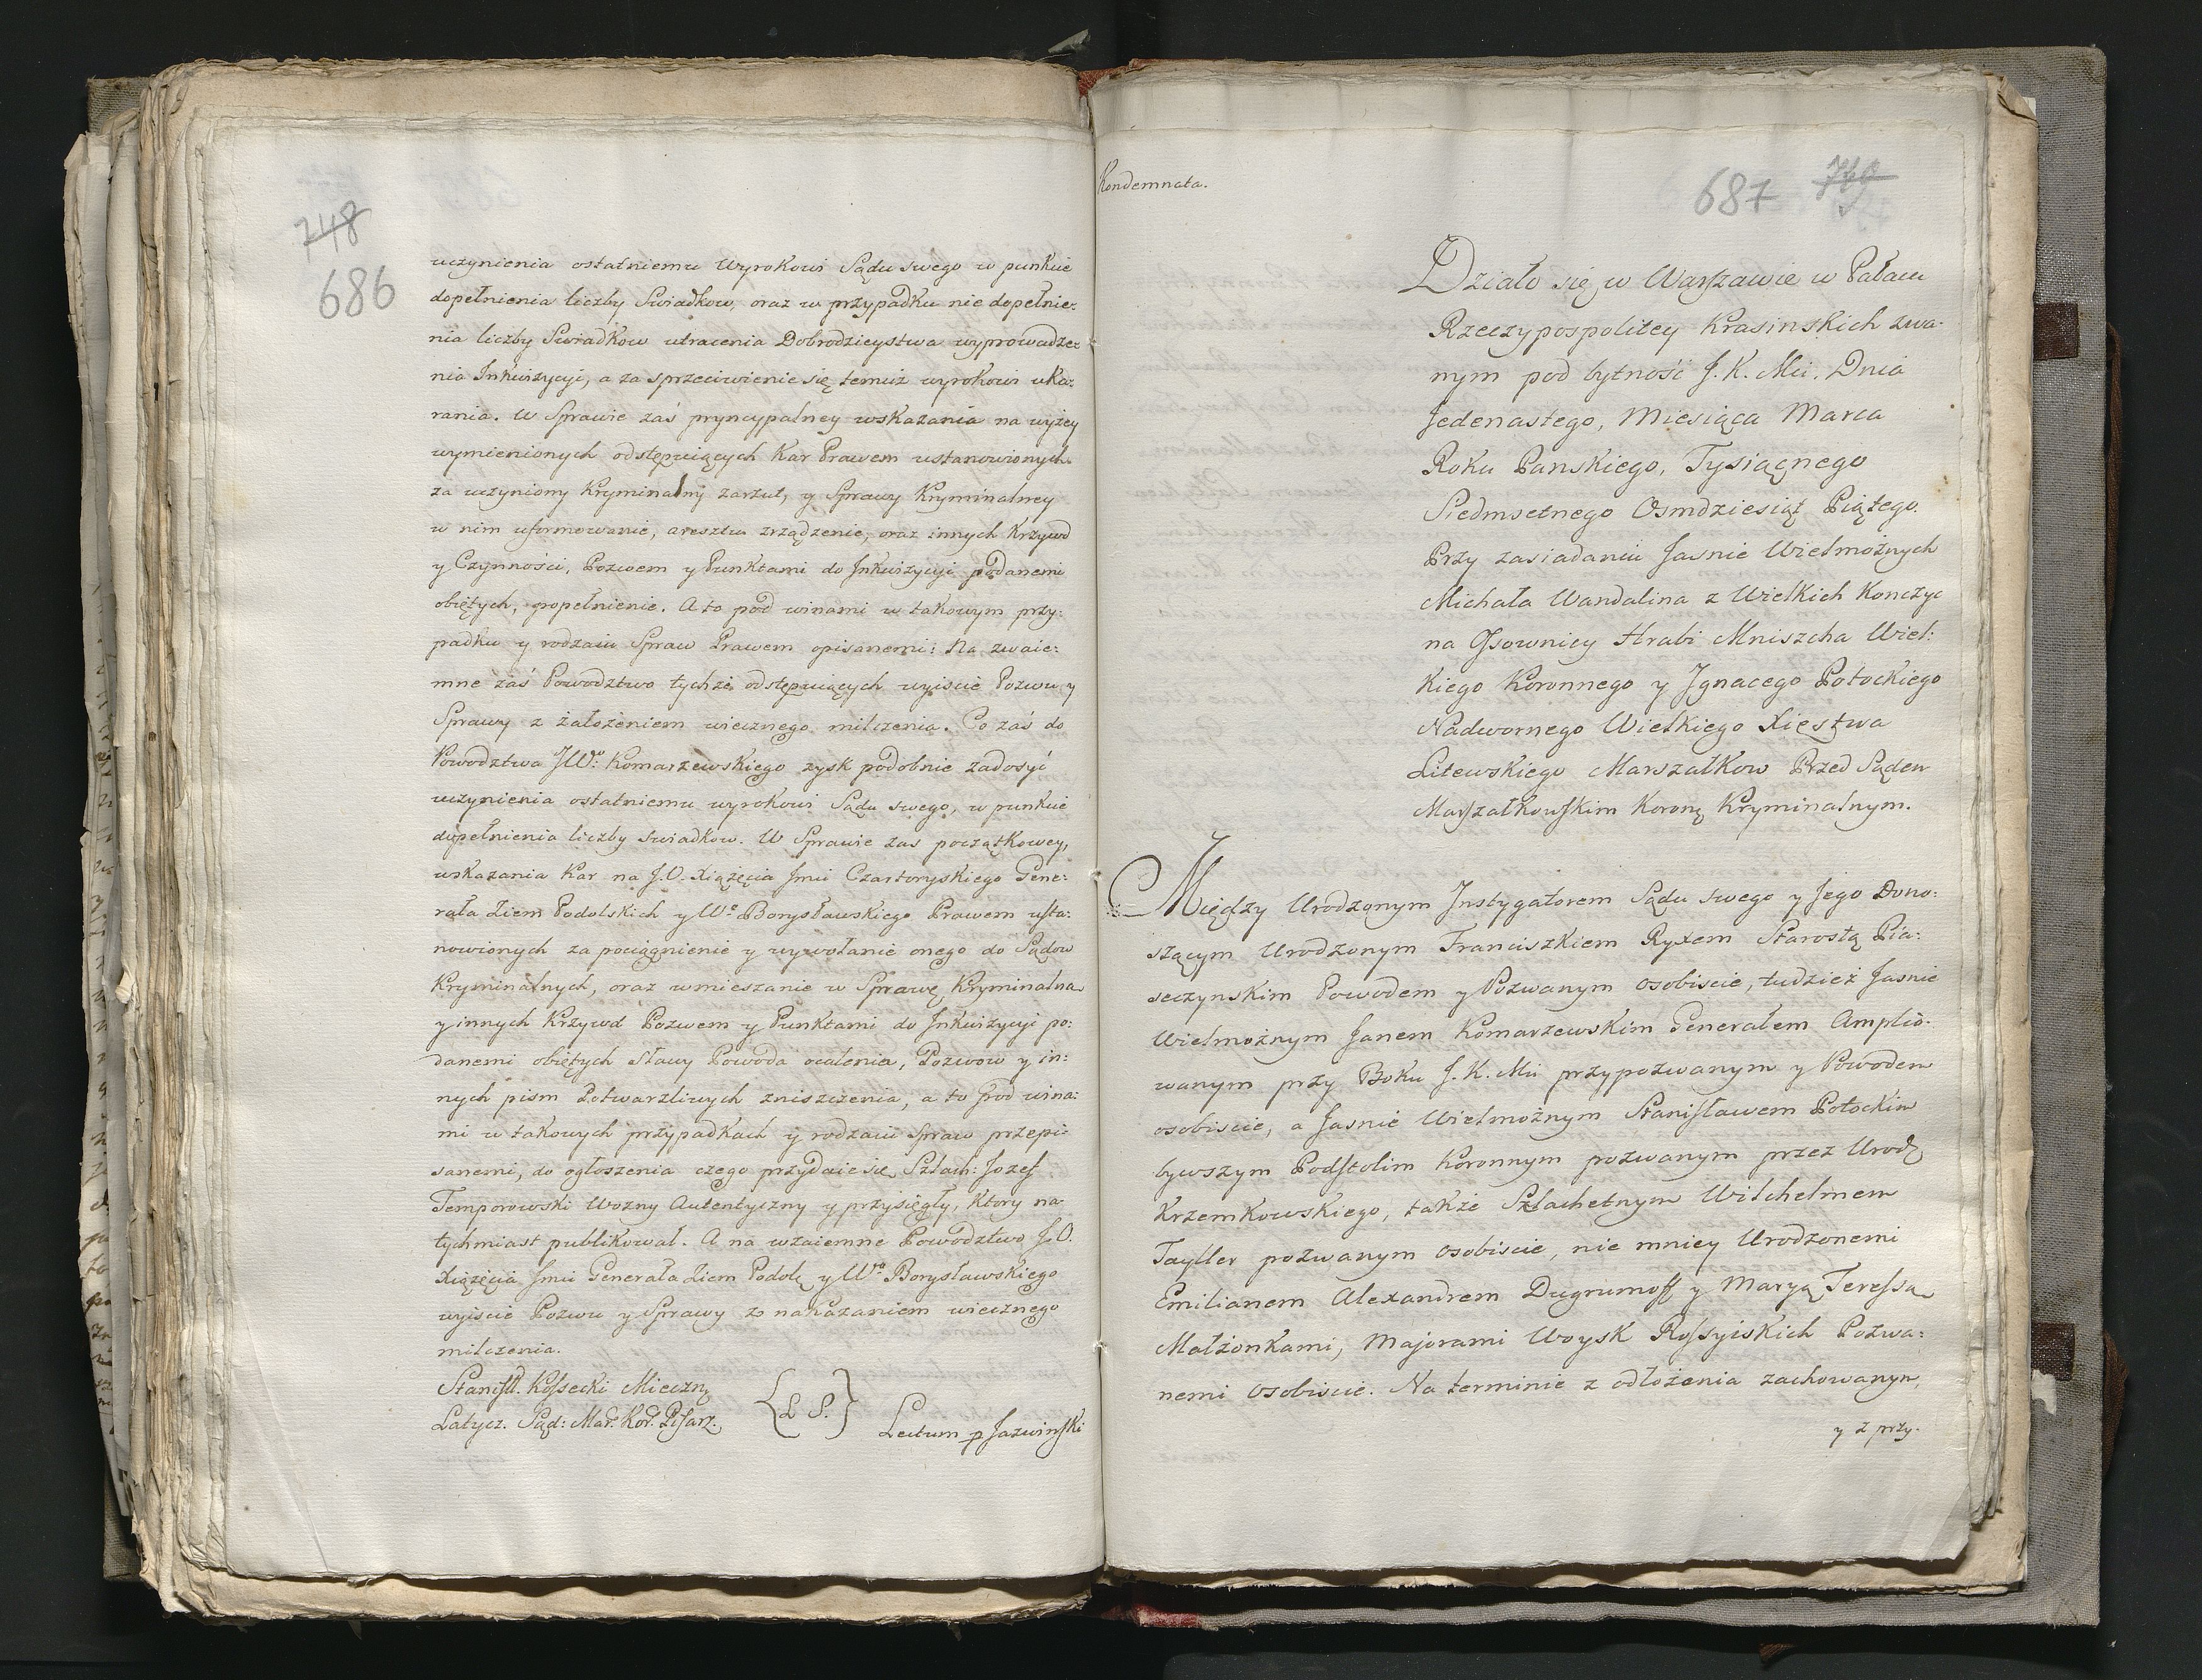 748
686
uczynienia ostatniemu Wyrokowi Sądu swego w punkcie
dopełnienia liczby Swiadkow, oraz w przypadku nie dopełnie:
nia liczby Swiadkow utracenia Dobrodzieystwa wyprowadze:
nia Inkwizycyi, a za sprzeciwienie się temuż wyrokowi uka:
rania. W Sprawie zaś pryncypalney wskazania na wyżey
wymienionych odstępuiących Kar Prawem ustanowionych
za uczyniony Kryminalny zarzut, y Sprawy Kryminalney
w nim uformowanie, aresztu zrządzenie, oraz innych Krzywd
y Czynności, Pozwem y Punktami do Inkwizycyi podanemi
obiętych, popełnienie. A to pod winami w takowym przy:
padku y rodzaiu Spraw Prawem opisanemi: Na zwaie:
mne zaś Powodztwo tychże odstępuiących wyiscie Pozwu y
Sprawy z założeniem wiecznego milczenia. Co zaś do
Powodztwa JWo: Komarzewskiego zysk podobnie zadosyć
uczynienia ostatniemu wyrokowi Sądu swego, w punkcie
dopełnienia liczby swiadkow. W Sprawie zas początkowey,
wskazania Kar na J.O. Xiążęcia Jmci Czartoryskiego Gene:
rała Ziem Podolskich y Wo Borysławskiego Prawem usta:
nowionych za pociągnienie y wywołanie onego do Sądow
Kryminalnych, oraz wmieszanie w Sprawę Kryminalna
y innych Krzywd Pozwem y Punktami do Inkwizycyi po:
danemi obiętych sławy Powoda ocalenia, Pozwow y in:
nych pism Potwarzliwych zniszczenia, a to pod wina:
mi w takowych przypadkach y rodzaiu Spraw przepi:
sanemi, do ogłoszenia czego przydaie się Szlach: Jozef
Temporowski Wozny Autentyczny y przysięgły, który na
tychmiast publikował. A na wzaiemne Powodztwo J.O.
Xiążęcia Jmci Generała Ziem Podolę y Wgo Borysławskiego
wyiscie Pozwu y Sprawy z nakazaniem wiecznego
milczenia.
Stanisł. Kossecki Mieczn
Latycz. Sąd: Mar. Kor. Pisarz.
{L S.}
Lectum p Jazwinski
Kondemnata.
687
Działo się w Warszawie w Pałacu
Rzeczypospolitey Krasinskich zwa:
nym pod bytność J.K. Mci. Dnia
Jedenastego, Miesiąca Marca
Roku Panskiego, Tysiącnego
Siedmsetnego Osmdziesiąt Piątego.
Przy zasiadaniu Jasnie Wielmożnych
Michała Wandalina z Wielkich Konczyc
na Ossownicy Hrabi Mniszcha Wiel:
kiego Koronnego y Jgnacego Potockiego
Nadwornego Wielkiego Xięstwa
Litewskiego Marszałkow Przed Sądem
Marszałkowskim Koronę Kryminalnym.
Między Urodzonym Jnstygatorem Sądu swego y Jego Dono:
szącym Urodzonym Franciszkiem Ryxem Starostą Pia:
seczynskim Powodem y Pozwanym osobiscie, tudzież Jasnie
Wielmożnym Janem Komarzewskim Generałem Amplio:
wanym przy Boku J.K. Mci przypozwanym y Powodem
osobiscie, a Jasnie Wielmożnym Stanisławem Potockim
bywszym Podstolim Koronnym pozwanym przez Urodz
Krzemkowskiego, także Szlachetnym Wilchelmem
Tayller pozwanym osobiscie, nie mniey Urodzonemi
Emilianem Alexandrem Dugrumoff y Maryą Teressą
Małżonkami, Majorami Woysk Rossyiskich Pozwa:
nemi osobiscie. Na terminie z odłożenia zachowanym,
y z przy: